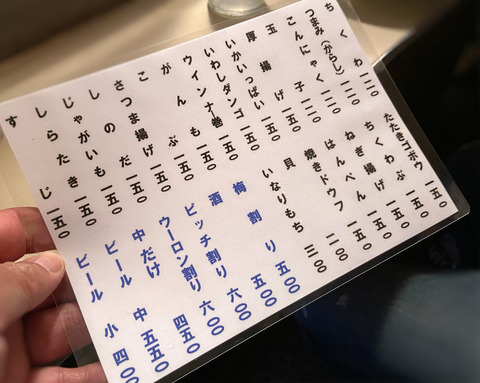 ちくわ 一二〇
つまみ(からし) 一二〇
こんにゃく 一二〇
玉子 一二〇
厚揚げ 一二〇
いかいっぱい 一五〇
いわしダンゴ 一五〇
ウインナー巻 一五〇
がんも 一五〇
こぶ 一五〇
さつま揚げ 一五〇
しのだ 一五〇
じゃがいも 一五〇
しらたき 一五〇
すじ 一五〇
たたきゴボウ 一五〇
ちくわぶ 一五〇
ねぎ揚げ 一五〇
はんぺん 一五〇
焼きドウフ 一五〇
貝 二〇〇
いなりもち 三〇〇
梅割り 五〇〇
酒 五〇〇
ビッチ割り 六〇〇
ウーロン割り 六〇〇
中だけ 四五〇
ビール 中 五五〇
ビール 小 四〇〇